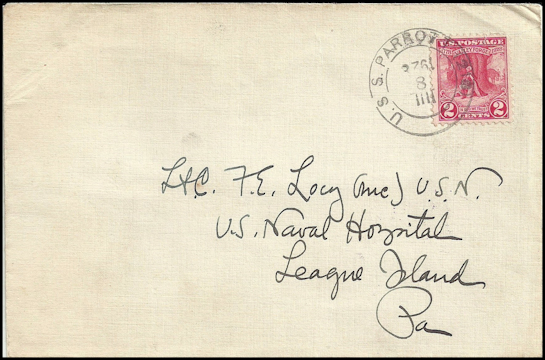 U.S.S. PARROTT
8
U.S. POSTAGE
VALLEY FORGE
2 CENTS 2
Lt.C. F.E. Locy (MC) U.S.N.
U.S. Naval Hospital
League Island
Pa